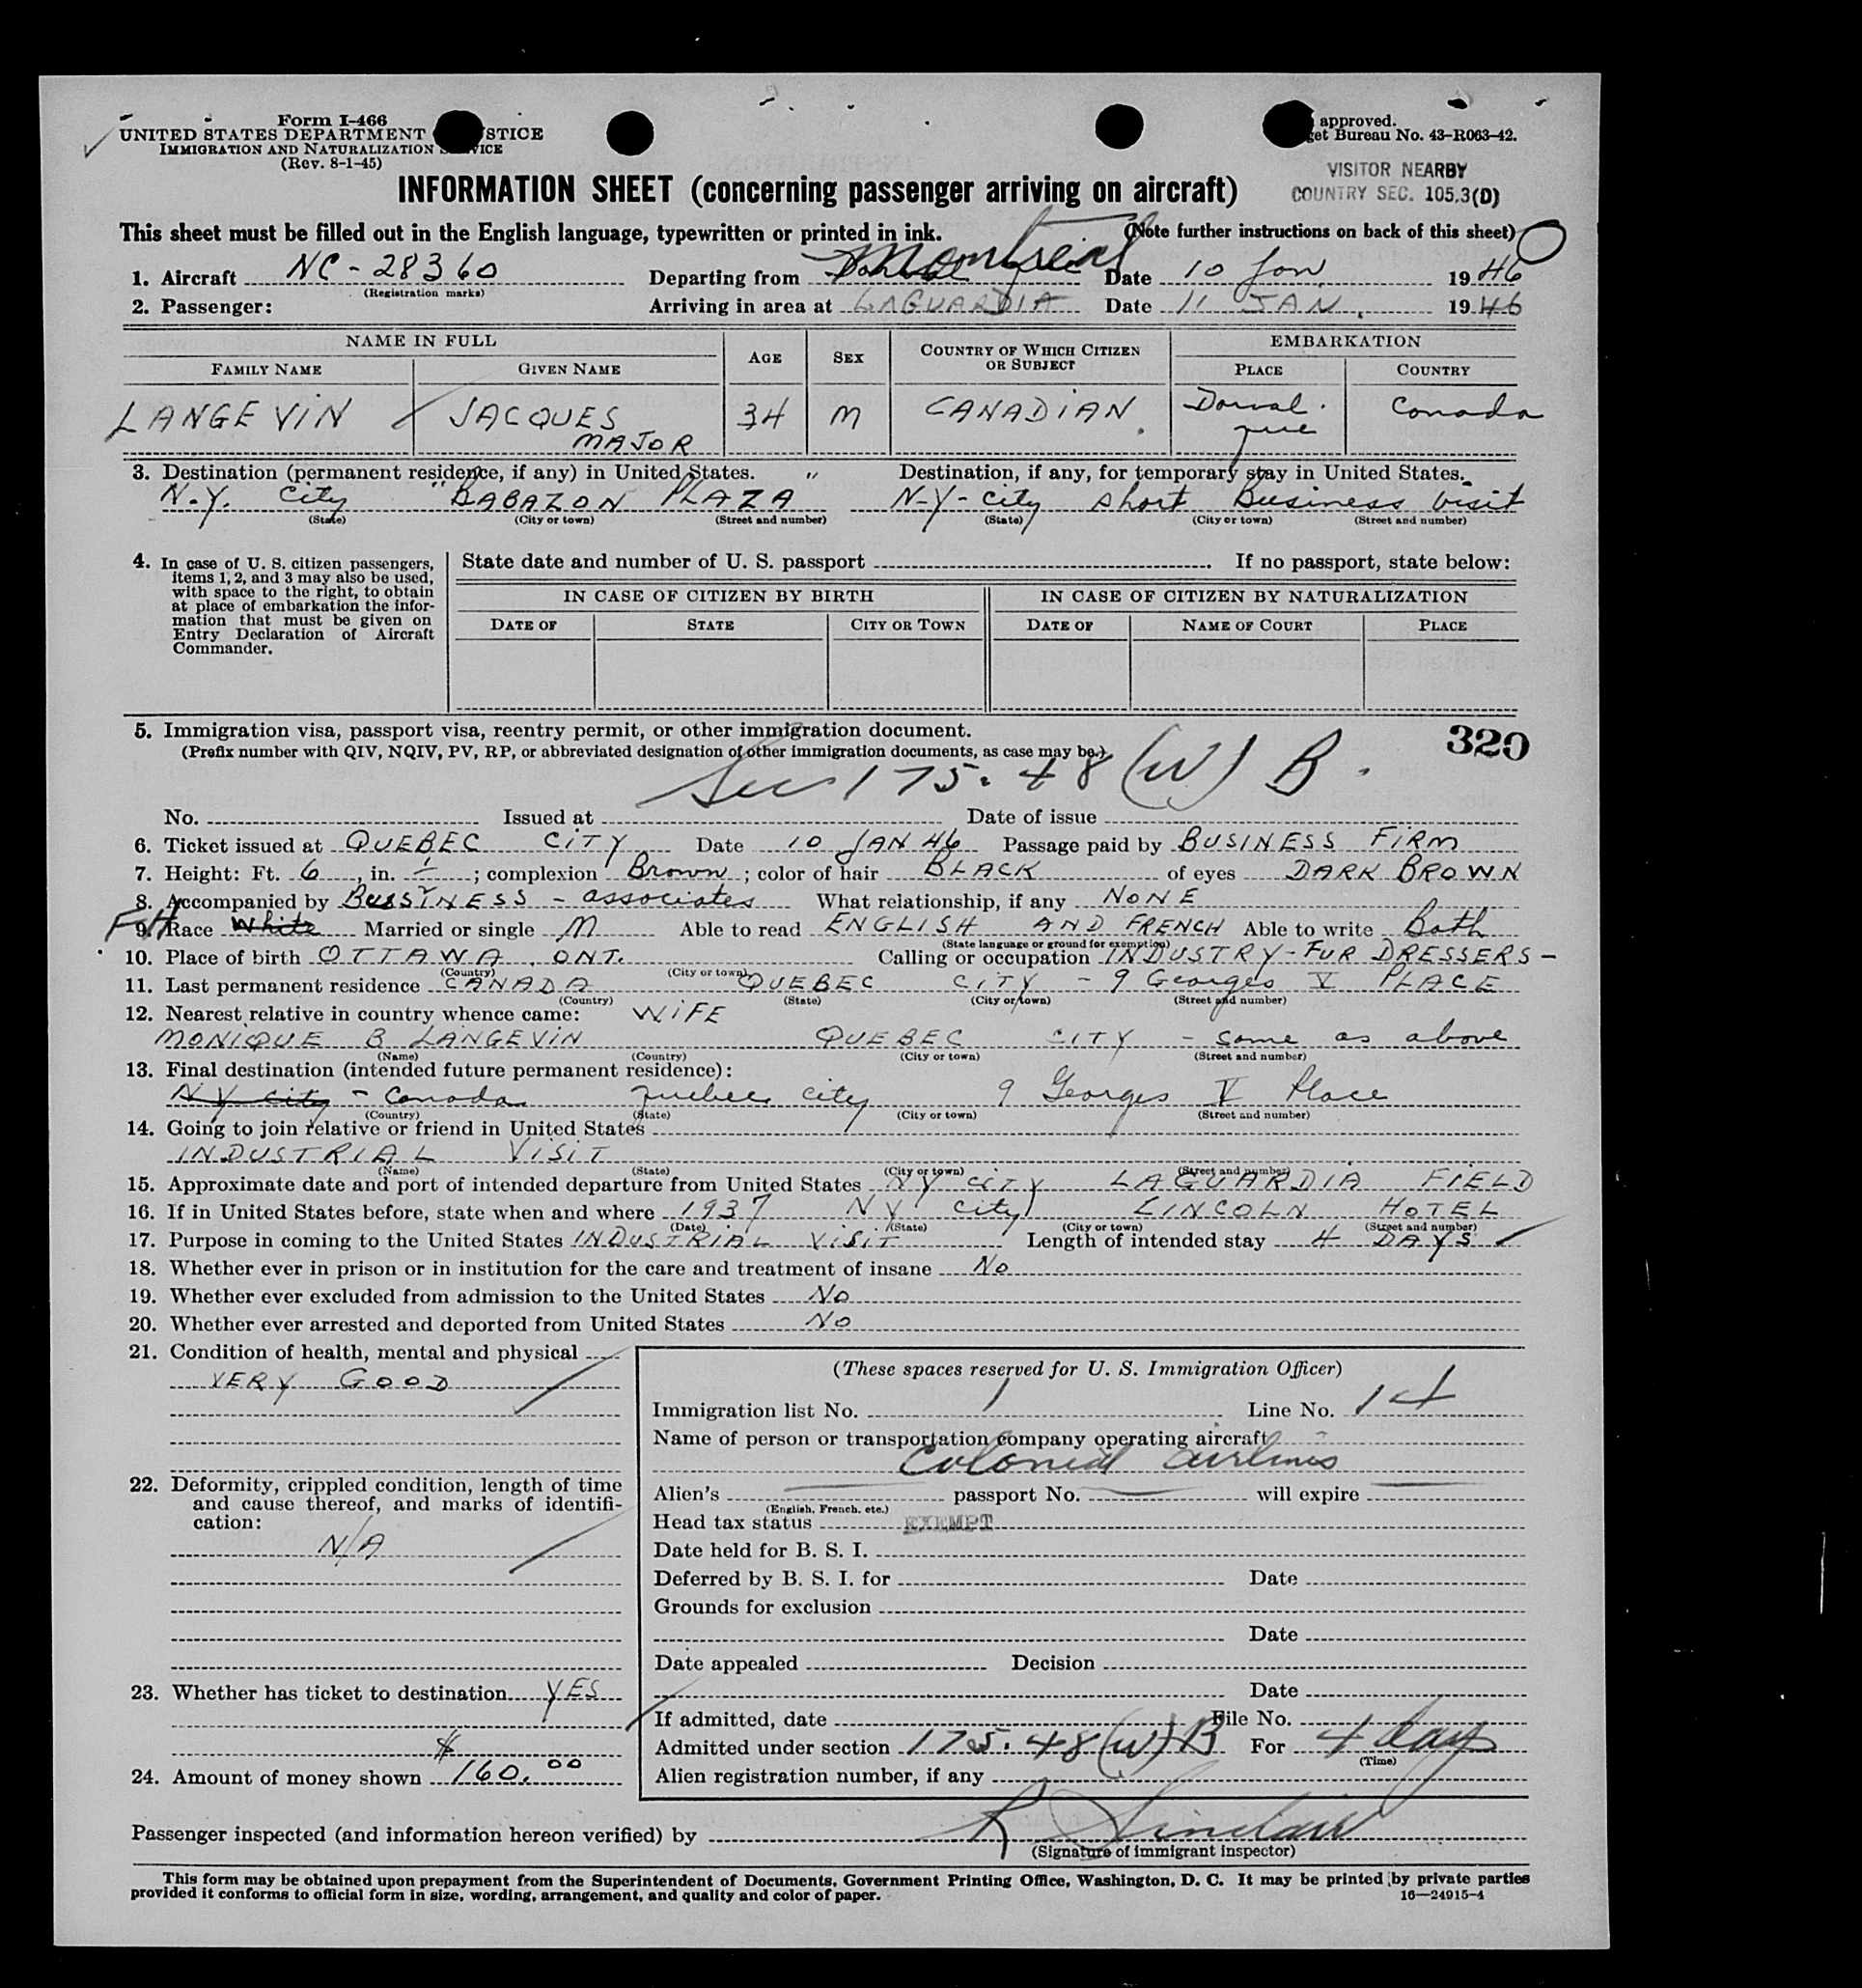 Form I-466
UNITED STATES DEPARTMENT STICE
IMMIGRATION AND NATURALIZATION S VICE
(Rev. 8-1-45)
approved.
et Bureau No. 43-R063-42.
VISITOR NEARBY
COUNTRY SEC. 105.3(D)
INFORMATION SHEET (concerning passenger arriving on aircraft)
This sheet must be filled out in the English language, typewritten or printed in ink. (Note further instructions on back of this sheet)
1. Aircraft NC-28360 Departing from Montreal Date 10 Jan 1946
(Registration marks)
2. Passenger: Arriving in area at LAGUARDIA Date 11 JAN. 1946
NAME IN FULL AGE SEX COUNTRY OF WHICH CITIZEN OR SUBJECT EMBARKATION
FAMILY NAME GIVEN NAME PLACE COUNTRY
LANGEVIN JACQUES 34 M CANADIAN. Dorval. Canada
MAJOR que
3. Destination (permanent residence, if any) in United States. " Destination, if any, for temporary stay in United States.
N.Y. City "BABAZON PLAZA N-Y-city short Business visit
(State) (City or town) (Street and number) (State) (City or town) (Street and number)
4. In case of U. S. citizen passengers, items 1, 2, and 3 may also be used, with space to the right, to obtain at place of embarkation the information that must be given on Entry Declaration of Aircraft Commander.
State date and number of U. S. passport . If no passport, state below:
IN CASE OF CITIZEN BY BIRTH IN CASE OF CITIZEN BY NATURALIZATION
DATE OF STATE CITY OR TOWN DATE OF NAME OF COURT PLACE
5. Immigration visa, passport visa, reentry permit, or other immigration document. 320
(Prefix number with QIV, NQIV, PV, RP, or abbreviated designation of other immigration documents, as case may be.)
Sec 175.48 (W) B.
No. Issued at Date of issue
6. Ticket issued at QUEBEC CITY Date 10 JAN 46 Passage paid by BUSINESS FIRM
7. Height: Ft. 6, in. ; complexion Brown; color of hair BLACK of eyes DARK BROWN
8. Accompanied by BUSSINESS - associates What relationship, if any NONE
FH 9. Race White Married or single M Able to read ENGLISH AND FRENCH Able to write Both
(State language or ground for exemption)
10. Place of birth OTTAWA, ONT. Calling or occupation INDUSTRY-FUR DRESSERS-
(Country) (City or town)
11. Last permanent residence CANADA QUEBEC CITY - 9 Georges V PLACE
(Country) (State) (City or town) (Street and number)
12. Nearest relative in country whence came: WIFE
MONIQUE B LANGEVIN QUEBEC CITY - same as above
(Name) (Country) (City or town) (Street and number)
13. Final destination (intended future permanent residence):
N Y city - Canada Quebec city 9 Georges V Place
(Country) (State) (City or town) (Street and number)
14. Going to join relative or friend in United States
INDUSTRIAL VISIT
(Name) (State) (City or town) (Street and number)
15. Approximate date and port of intended departure from United States NY CITY LAGUARDIA FIELD
16. If in United States before, state when and where 1937 NY City LINCOLN HOTEL
(Date) (State) (City or town) (Street and number)
17. Purpose in coming to the United States INDUSTRIAL VISIT Length of intended stay 4 DAYS
18. Whether ever in prison or in institution for the care and treatment of insane No
19. Whether ever excluded from admission to the United States No
20. Whether ever arrested and deported from United States No
21. Condition of health, mental and physical
VERY GOOD
22. Deformity, crippled condition, length of time and cause thereof, and marks of identification:
N/A
23. Whether has ticket to destination YES
24. Amount of money shown $160.00
(These spaces reserved for U. S. Immigration Officer)
Immigration list No. 1 Line No. 14
Name of person or transportation company operating aircraft
Colonial Airlines
Alien's passport No. will expire
(English, French, etc.)
Head tax status EXEMPT
Date held for B. S. I.
Deferred by B. S. I. for Date
Grounds for exclusion
Date
Date appealed Decision
Date
If admitted, date File No.
Admitted under section 175.48(W)B For 4 days
(Time)
Alien registration number, if any
Passenger inspected (and information hereon verified) by R Sinclair
(Signature of immigrant inspector)
This form may be obtained upon prepayment from the Superintendent of Documents, Government Printing Office, Washington, D. C. It may be printed by private parties
provided it conforms to official form in size, wording, arrangement, and quality and color of paper. 16—24915-4